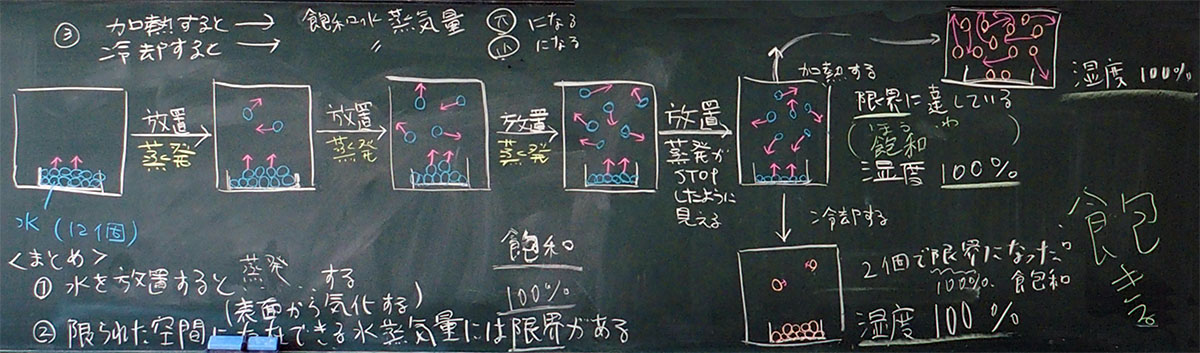 ③ 加熱すると → 飽和水蒸気量 大になる
冷却すると → 〃 小になる
放置
蒸発
放置
蒸発
放置
蒸発
放置
蒸発が
STOP
したように
見える
加熱する
限界に達している
ほう わ
(飽和)
湿度 100%
湿度 100%
冷却する
2個で限界になった。
100%、飽和
湿度 100%
飽
きる
水(12個)
<まとめ>
① 水を放置すると蒸発する
(表面から気化する)
② 限られた空間にできる水蒸気量には限界がある
飽和
100%